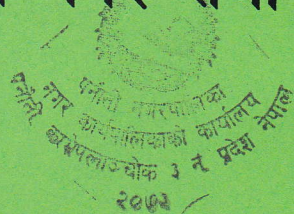 पनौती नगरपालिका
नगर कार्यपालिकाको कार्यालय
पनौती, काभ्रेपलाञ्चोक ३ नं. प्रदेश नेपाल
२०७३